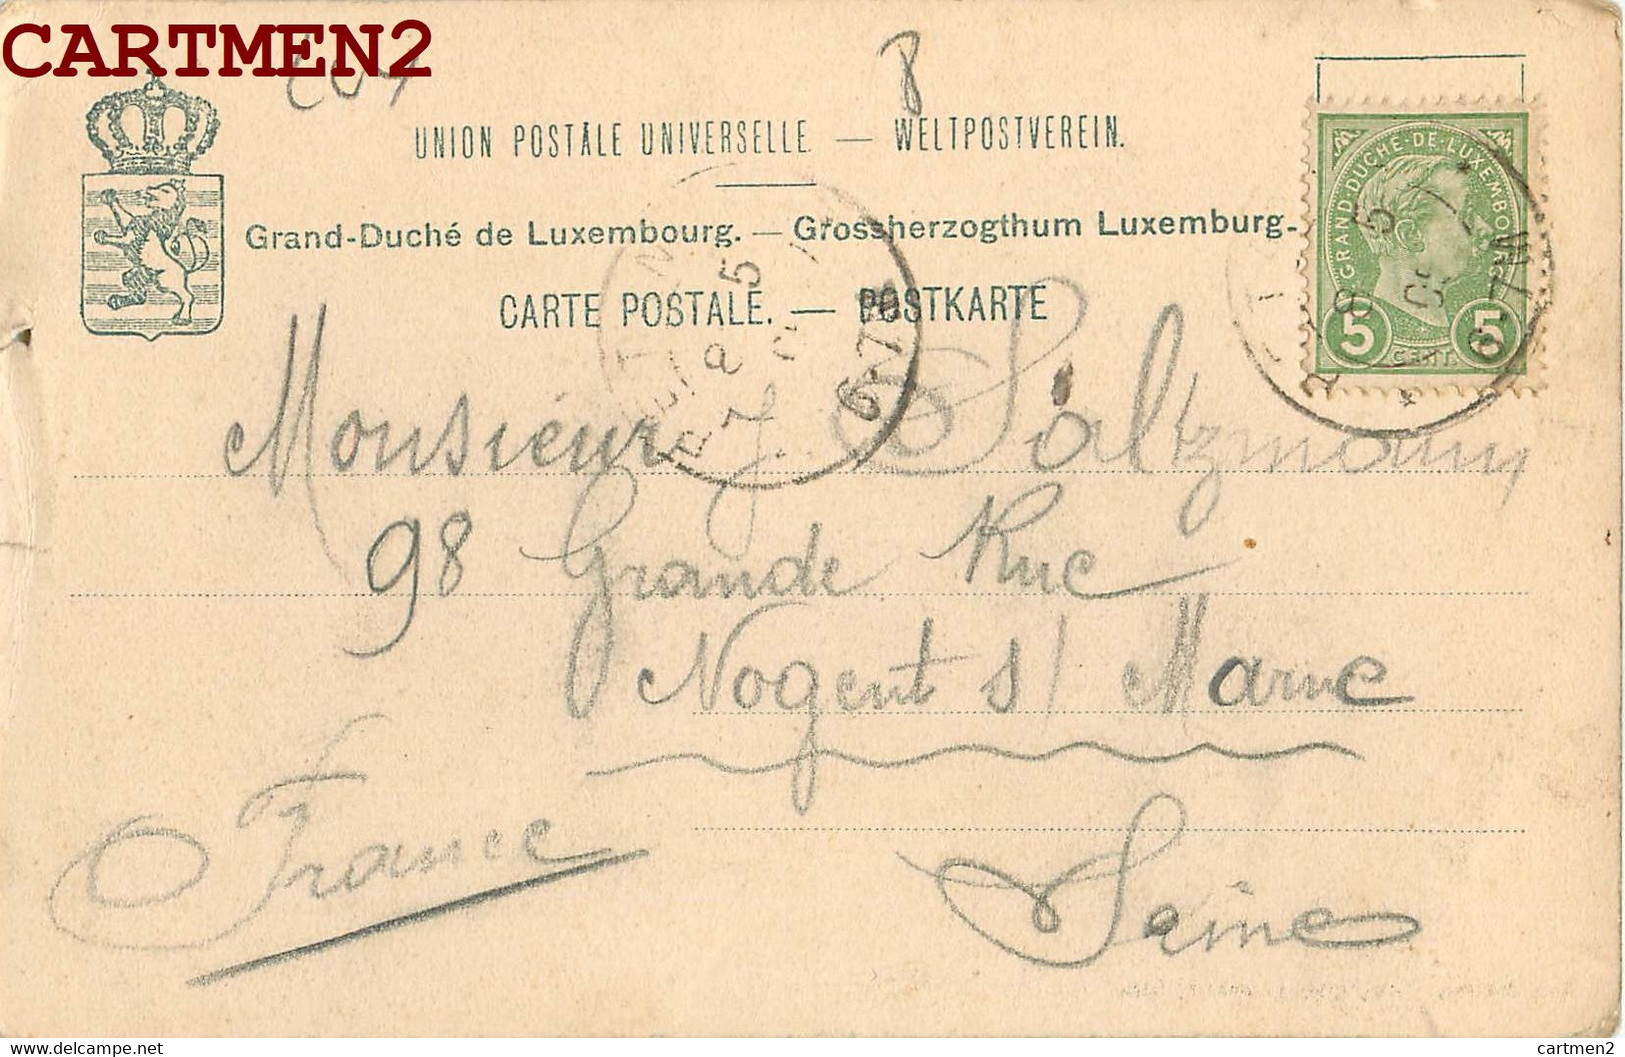 CARTMEN2
UNION POSTALE UNIVERSELLE. — WELTPOSTVEREIN.
Grand-Duché de Luxembourg. — Grossherzogthum Luxemburg.
CARTE POSTALE. — POSTKARTE
GRAND-DUCHÉ-DE-LUXEMBOURG
5 CENT. 5
6-7
Monsieur J. Saltzmann
98 Grande Rue
Nogent s/ Marne
Seine
France
delcampe.net
cartmen2